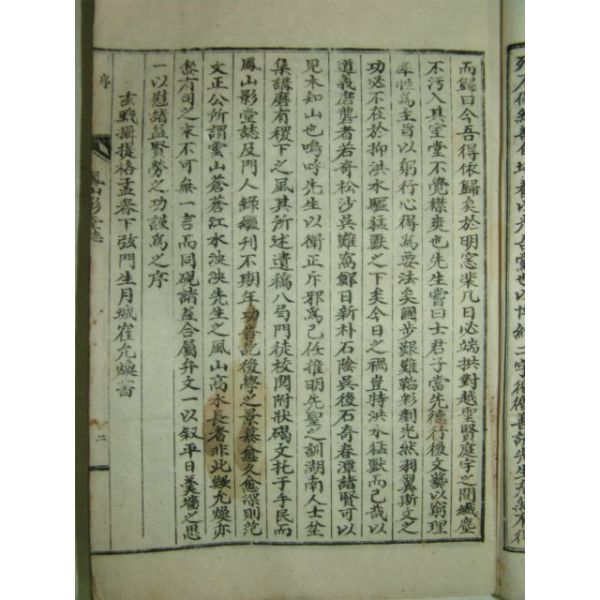 而歸曰今吾得依歸矣於明窓棐几日必端拱對越聖賢庭宇之間纖塵
不汚入其室堂不覺襟爽也先生嘗曰士君子當先德行後文藝以窮理
率性爲主旨以躬行心得爲要法矣國步艱難韜彩剷光然羽翼斯文之
功必不在於抑洪水驅猛獸之下矣今日之禍豈特洪水猛獸而已哉以
道義磨礱者若奇松沙吳難窩鄭日新朴石陰吳後石奇春潭諸賢可以
見木知山也嗚呼先生以衛正斥邪爲己任推明先聖之訓湖南人士坌
集講磨有稷下之風其所述遺稿八局門徒校閱附狀碣文托于手民而
鳳山影堂誌及門人錄繼刊不期年功告訖後學之景慕愈久愈深則范
文正公所謂雲山蒼蒼江水泱泱先生之風山高水長者非此歟允煥亦
忝有司之末不可無一言而同硯諸益合屬弁文一以叙平日羹墻之思
一以慰諸益賢勞之功謹爲之序
玄黓攝提格孟春下弦門生月城崔允煥書
序
鳳山影堂誌
二